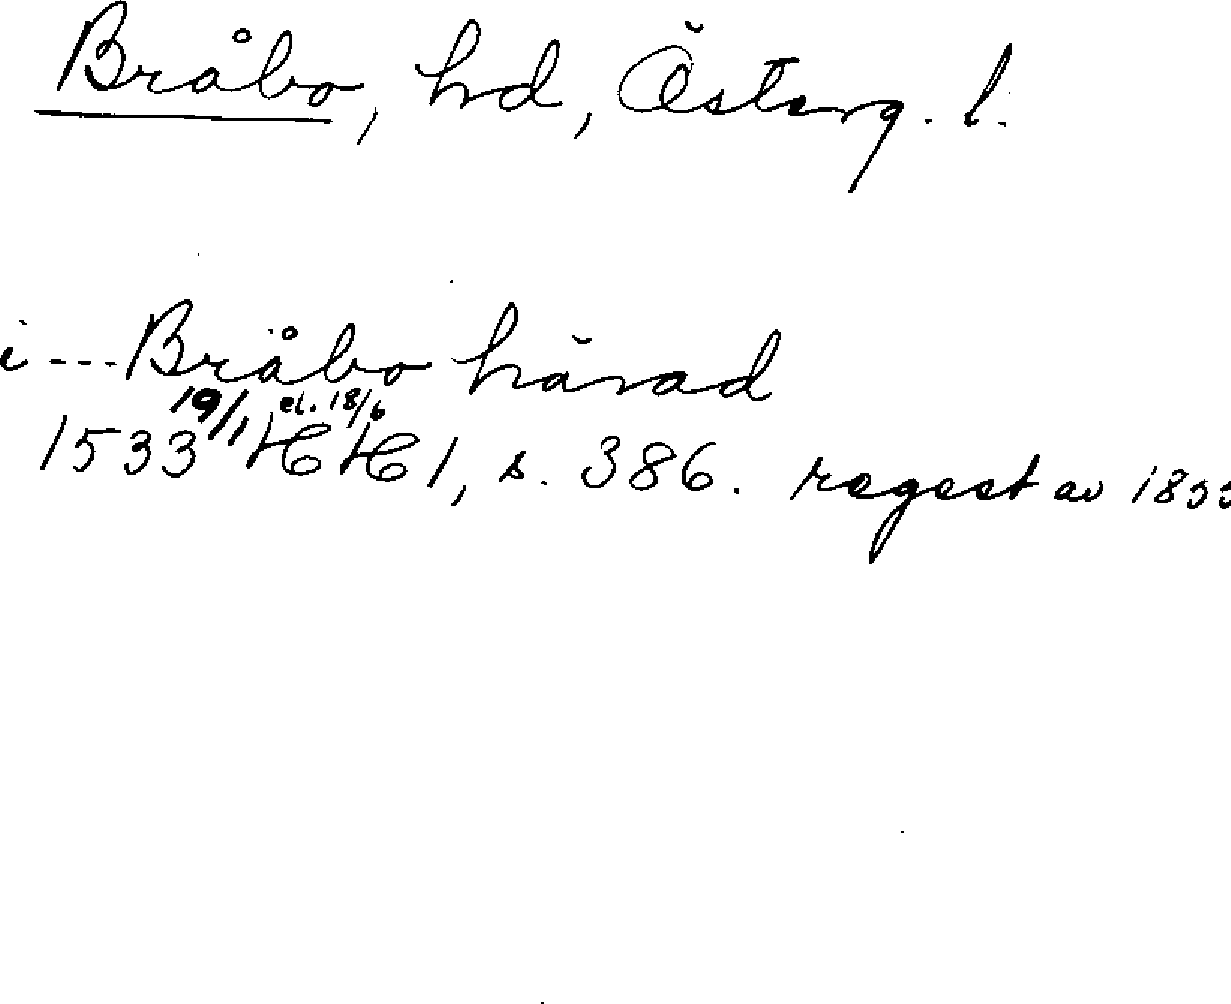 Bråbo, hd, Österg. l.
i --- Bråbo härad
19/1 el. 18/6
1533 HH 1, s. 386. regest av 1833